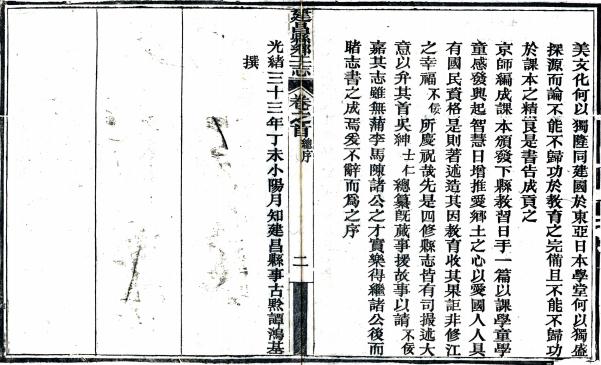 美文化何以獨隆同建國於東亞日本學堂何以獨盛
探源而論不能不歸功於教育之完備且不能不歸功
於課本之精良是書告成貢之
京師編成課本頒發下縣教習日手一篇以課學童學
童感發興起智慧日增推愛鄉土之心以愛國人人具
有國民資格是則著述造其因教育收其果詎非修江
之幸福不佞所慶祝哉先是四修縣志皆有司撮述大
意以弁其首吳紳士仁總纂既蕆事援故事以請不佞
嘉其志雖無蒲李馬陳諸公之才實樂得繼諸公後而
睹志書之成焉爰不辭而為之序
光緒三十三年丁未小陽月知建昌縣事古黟譚鴻基
撰
建昌縣鄉土志
卷之首
總序
二